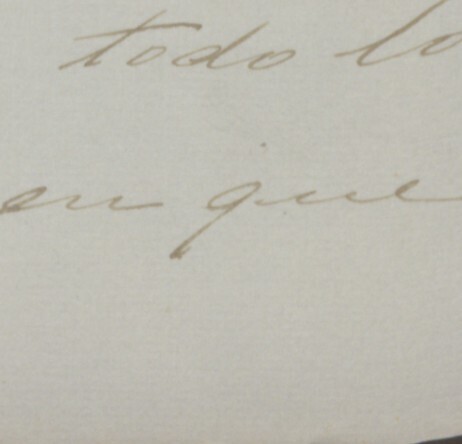 todo lo
en que